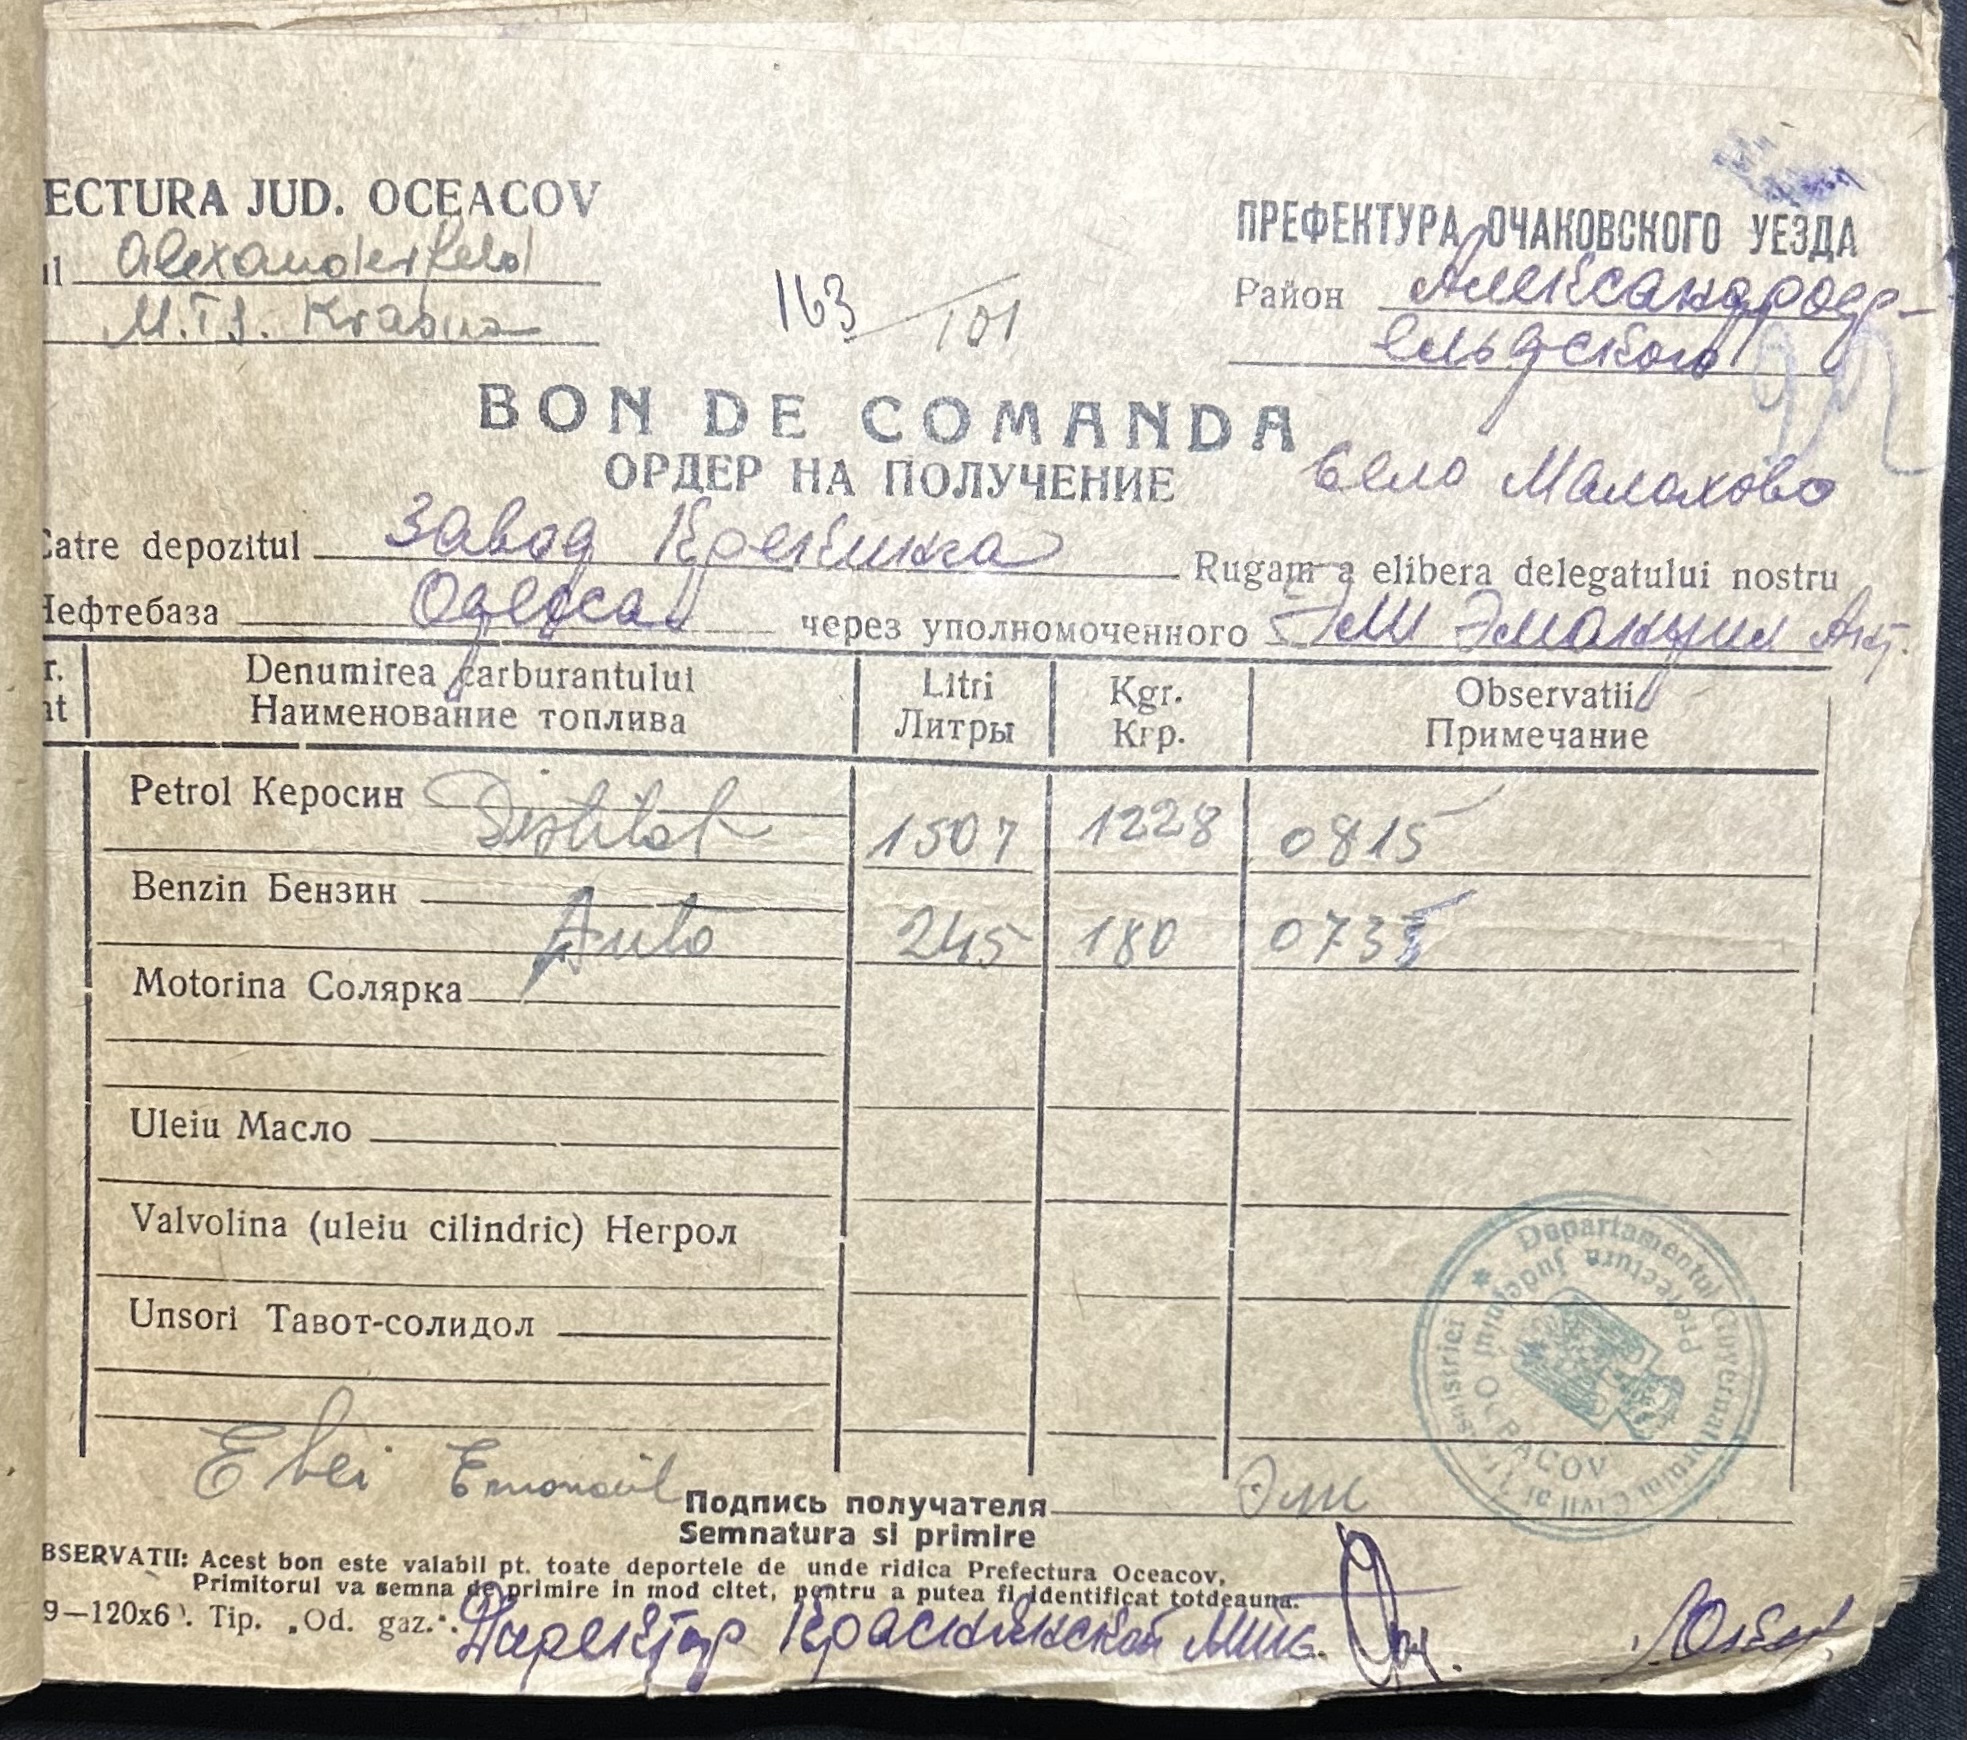 ECTURA JUD. OCEACOV
ПРЕФЕКТУРА ОЧАКОВСКОГО УЕЗДА
ul Alexanderfeld
Район Александроф-
M.T.S. Krasna
ельдского
163/101
BON DE COMANDA
ОРДЕР НА ПОЛУЧЕНИЕ
Село Малахово
Catre depozitul завод Крекинга Rugam a elibera delegatului nostru
Нефтебаза Одесса через уполномоченного Эли Эмануил
r. Denumirea carburantului Litri Kgr. Observatii
nt Наименование топлива Литры Кгр. Примечание
Petrol Керосин Distilat 1507 1228 0815
Benzin Бензин Auto 245 180 0735
Motorina Солярка
Uleiu Масло
Valvolina (uleiu cilindric) Негрол
Unsori Тавот-солидол
Departamentul Guvernatorului Civil al Transnistriei
Prefectura Judeţului
OCEACOV
Emanuil
Подпись получателя
Semnatura si primire
BSERVATII: Acest bon este valabil pt. toate deportele de unde ridica Prefectura Oceacov,
Primitorul va semna de primire in mod citet, pentru a putea fi identificat totdeauna.
9—120x6. Tip. „Od. gaz.".
Директор Краснянской МТС.